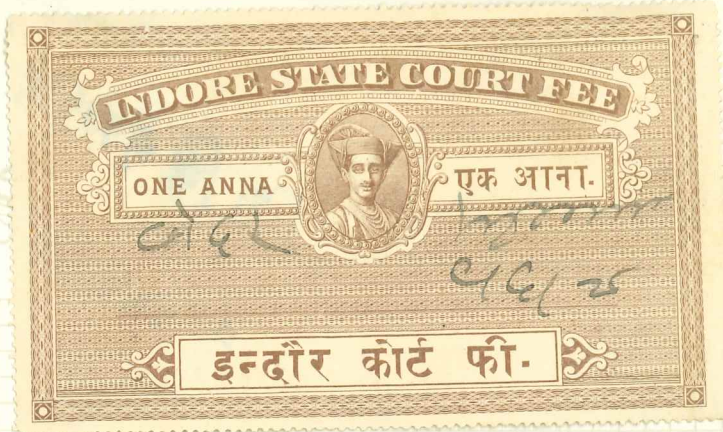 INDORE STATE COURT FEE
ONE ANNA
एक आना.
इन्दौर कोर्ट फी.